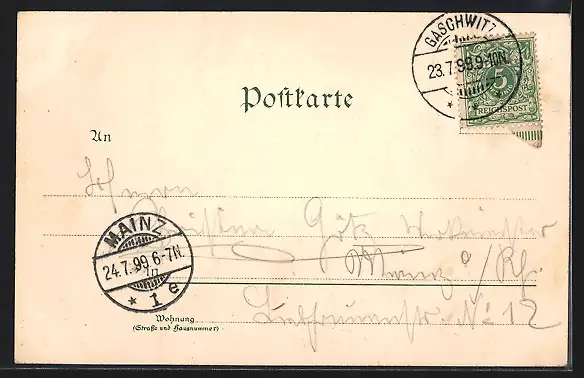 GASCHWITZ
23.7.99.9-10N.
5
REICHSPOST
Postkarte
An
Herrn
Götz
MAINZ
24.7.99.6-7N.
* 1 e
Mainz a/Rh.
Wohnung
(Straße und Hausnummer)
No 12